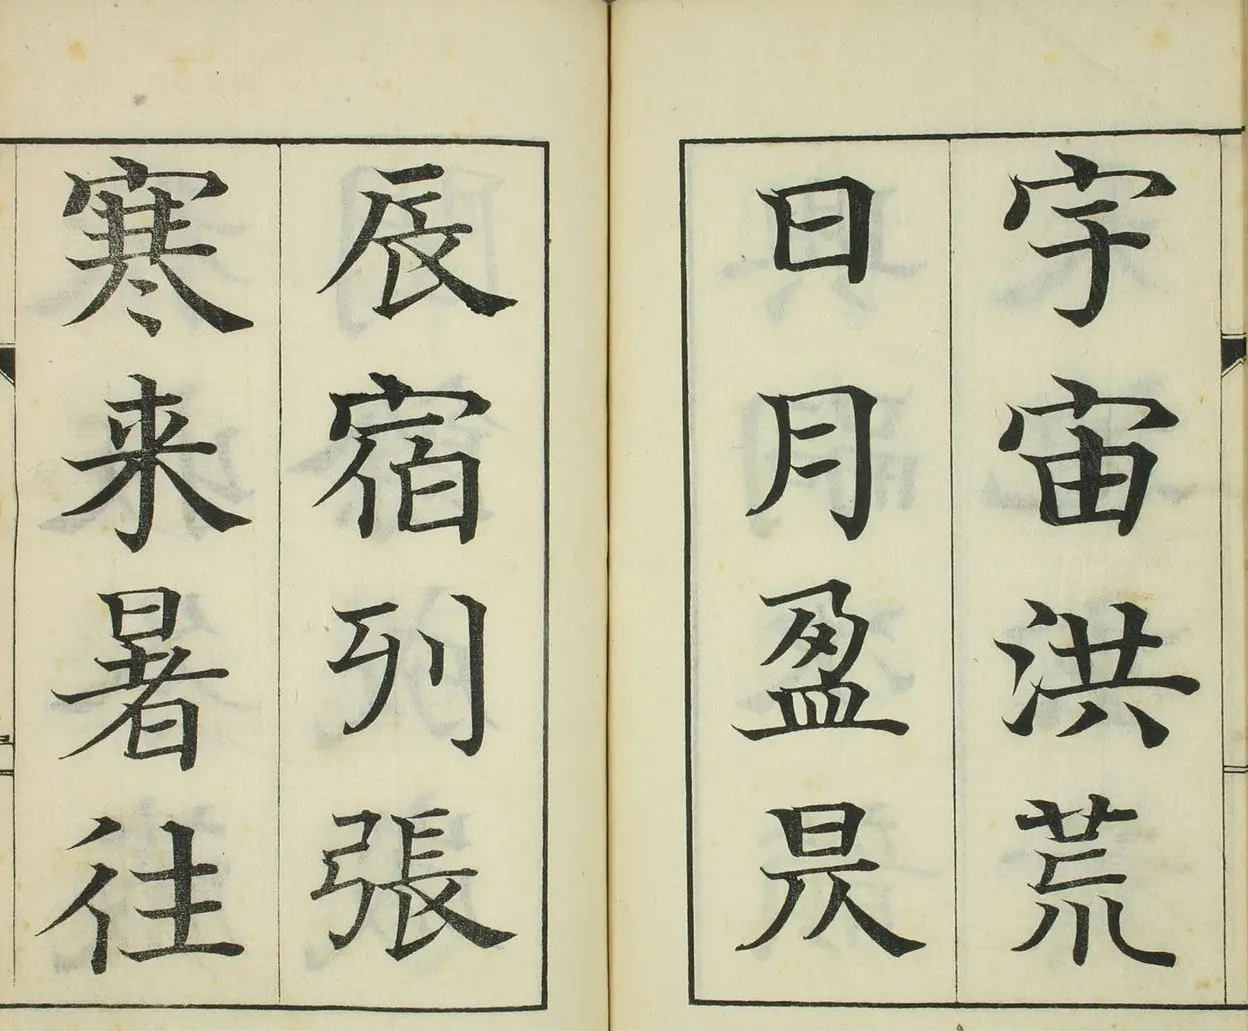 宇宙洪荒
日月盈昃
辰宿列張
寒来暑往